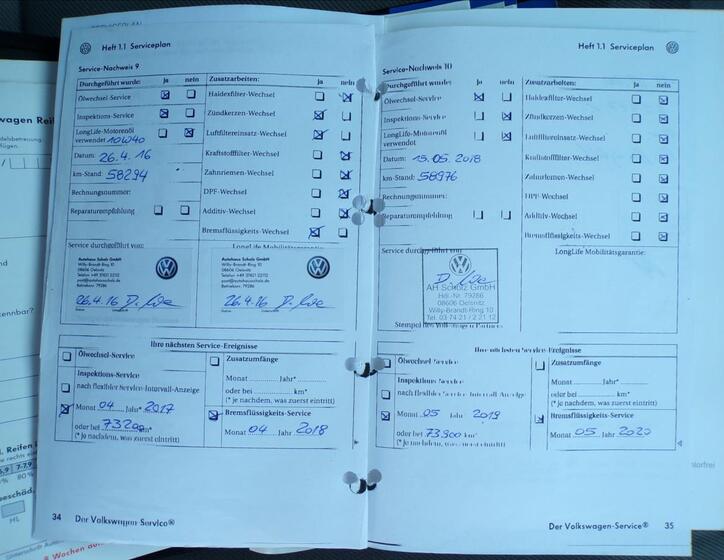 SERVICEPLAN
Heft 1.1 Serviceplan
Service-Nachweis 9
Durchgeführt wurde: Ja nein
Zusatzarbeiten: ja nein
Ölwechsel-Service
Inspektions-Service
LongLife-Motorenöl
verwendet 10W40
Datum: 26.4.16
km-Stand: 58294
Rechnungsnummer:
Reparaturempfehlung
Haidexfilter-Wechsel
Zündkerzen-Wechsel
Luftfiltereinsatz-Wechsel
Kraftstofffilter-Wechsel
Zahnriemen-Wechsel
DPF-Wechsel
Additiv-Wechsel
Bremsflüssigkeits-Wechsel
Service durchgeführt von:
LongLife Mobilitätsgarantie:
Autohaus Scholz GmbH
Willy-Brandt-Ring 10
08606 Oelsnitz
26.4.16
Autohaus Scholz GmbH
Willy-Brandt-Ring 10
08606 Oelsnitz
26.4.16
Ihre nächsten Service-Ereignisse
Ölwechsel-Service
Inspektions-Service
nach flexibler Service-Intervall-Anzeige
Monat 04 Jahr* 2017
oder bei 73200 km*
(* je nachdem, was zuerst eintritt)
Zusatzumfänge
Monat Jahr*
oder bei km*
(* je nachdem, was zuerst eintritt)
Bremsflüssigkeits-Service
Monat 04 Jahr 2018
34 Der Volkswagen-Service®
Heft 1.1 Serviceplan
Service-Nachweis 10
Durchgeführt wurde: ja nein
Zusatzarbeiten: ja nein
Ölwechsel-Service
Inspektions-Service
LongLife-Motorenöl
verwendet
Datum: 15.05.2018
km-Stand: 58976
Rechnungsnummer:
Reparaturempfehlung
Haidexfilter-Wechsel
Zündkerzen-Wechsel
Luftfiltereinsatz-Wechsel
Kraftstofffilter-Wechsel
Zahnriemen-Wechsel
DPF-Wechsel
Additiv-Wechsel
Bremsflüssigkeits-Wechsel
Service durchgeführt von:
LongLife Mobilitätsgarantie:
AH Scholz GmbH
Hdl.-Nr. 79286
08606 Oelsnitz
Willy-Brandt-Ring 10
Tel. 03 74 21 / 2 21 12
Stempel des Volkswagen Partners
Ihre nächsten Service-Ereignisse
Ölwechsel-Service
Inspektions-Service
nach flexibler Service-Intervall-Anzeige
Monat 05 Jahr* 2019
oder bei 73900 km*
(* je nachdem, was zuerst eintritt)
Zusatzumfänge
Monat Jahr*
oder bei km*
(* je nachdem, was zuerst eintritt)
Bremsflüssigkeits-Service
Monat 05 Jahr 2020
Der Volkswagen-Service® 35